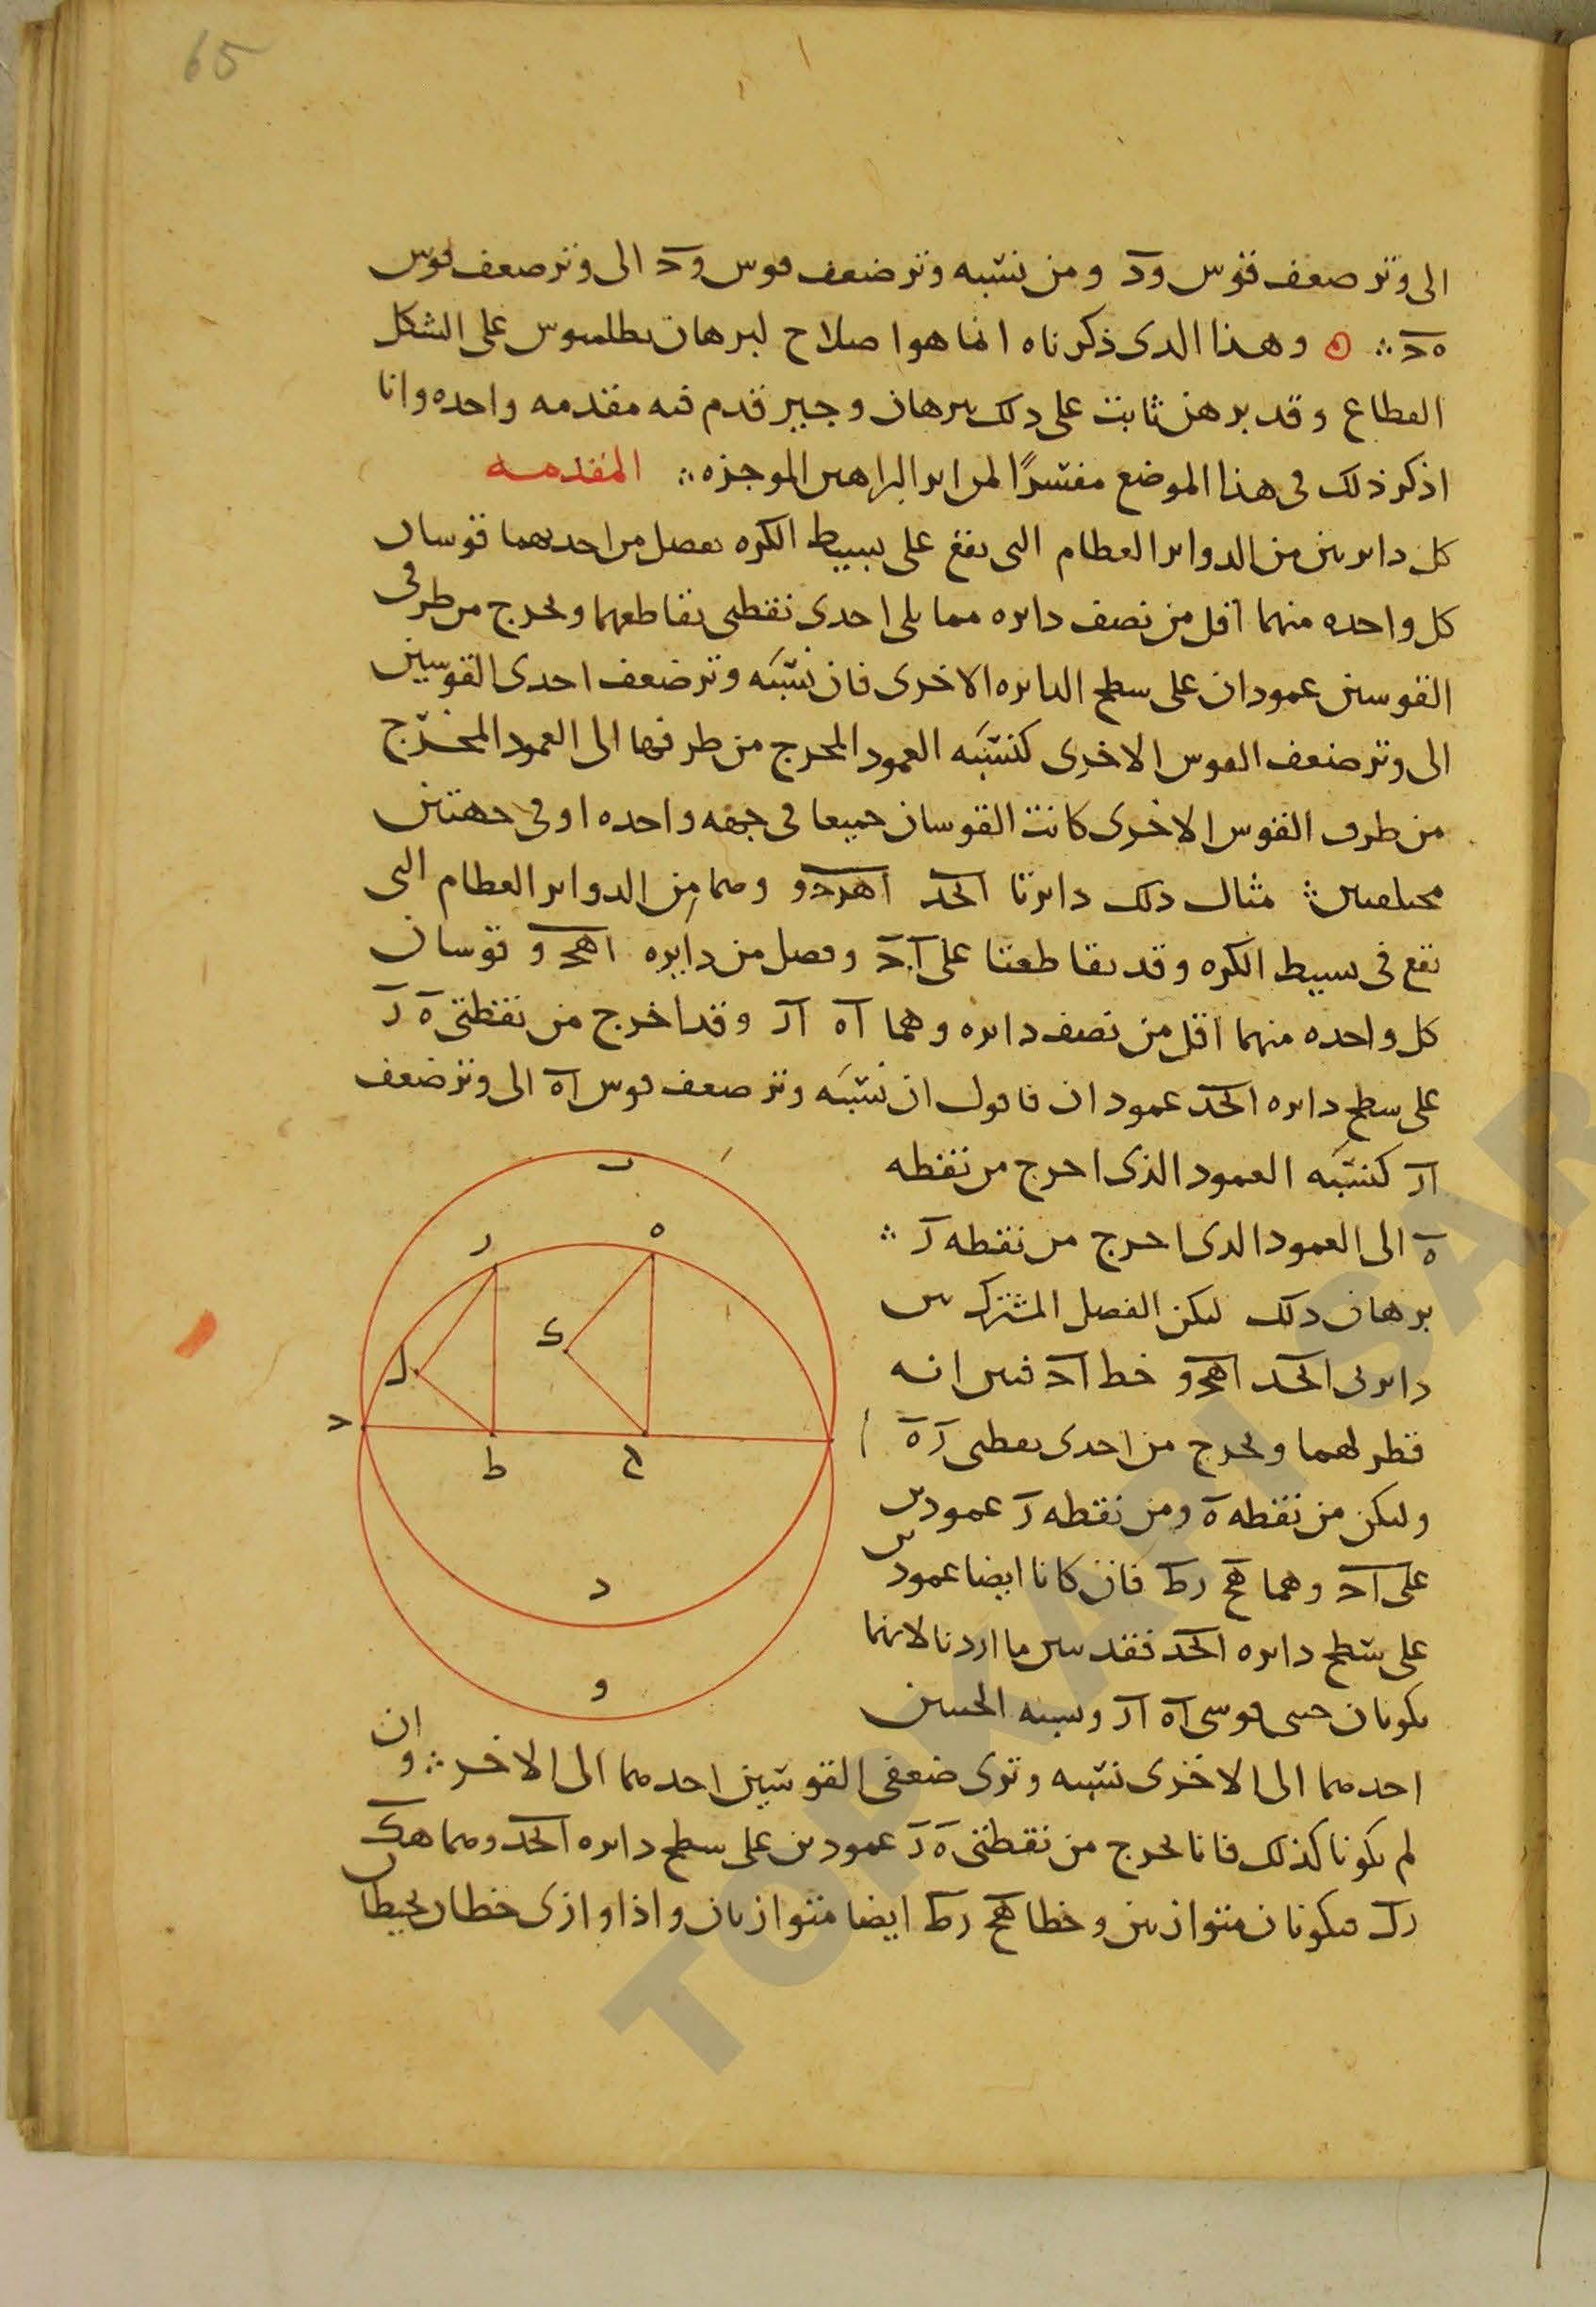 65
الى وتر ضعف قوس ود ومن نسبه وتر ضعف قوس وح الى وتر ضعف قوس
ه ح ∴ وهذا الذى ذكرناه انما هو اصلاح لبرهان بطلميوس على الشكل
القطاع وقد برهن ثابت على ذلك ببرهان وجيز قدم فيه مقدمه واحده وانا
اذكر ذلك فى هذا الموضع مفسرًا لمن اثر البراهين الموجزه ∴ المقدمه
كل دايرتين من الدواير العظام التى تقع على بسيط الكره يفصل من احديهما قوسان
كل واحده منهما اقل من نصف دايره مما يلى احدى نقطتى تقاطعهما ويخرج من طرفى
القوسين عمودان على سطح الدايره الاخرى فان نسبه وتر ضعف احدى القوسين
الى وتر ضعف القوس الاخرى كنسبه العمود المخرج من طرفها الى العمود المخرج
من طرف القوس الاخرى كانت القوسان جميعا فى جهه واحده او فى جهتين
مختلفتين ∴ مثال ذلك دايرتا ابحد اهرحو وهما من الدواير العظام التى
تقع فى بسيط الكره وقد تقاطعتا على ا ح وفصل من دايره اهحو قوسان
كل واحده منهما اقل من نصف دايره وهما اه ار وقد اخرج من نقطتى ه ر
على سطح دايره ابحد عمودان فاقول ان نسبه وتر ضعف قوس اه الى وتر ضعف
ار كنسبه العمود الذى اخرج من نقطه
ه الى العمود الذى اخرج من نقطه ر ∴
برهان ذلك ليكن الفصل المشترك بين
دايرتى ابحد اهحو خط اح فبين انه
قطر لهما ويخرج من احدى نقطتى ر ه
وليكن من نقطه ه ومن نقطه ر عمودين
على اح وهما هح رط فان كانا ايضا عمودين
على سطح دايره ابحد فقد تبين ما اردنا لانهما
يكونان جيبى قوسى اه ار ونسبه الجيبين
احدهما الى الاخرى نسبه وترى ضعفى القوسين احدهما الى الاخر ∴ وان
لم يكونا كذلك فانا نخرج من نقطتى ه ر عمودين على سطح دايره ابحد وهما هك
رل فيكونان متوازيين وخطا هح رط ايضا متوازيان واذا وازى خطان يحيطان
ب
ر
ه
ك
ل
ح
ا
ط
ح
د
و
TOPKAPI SAR